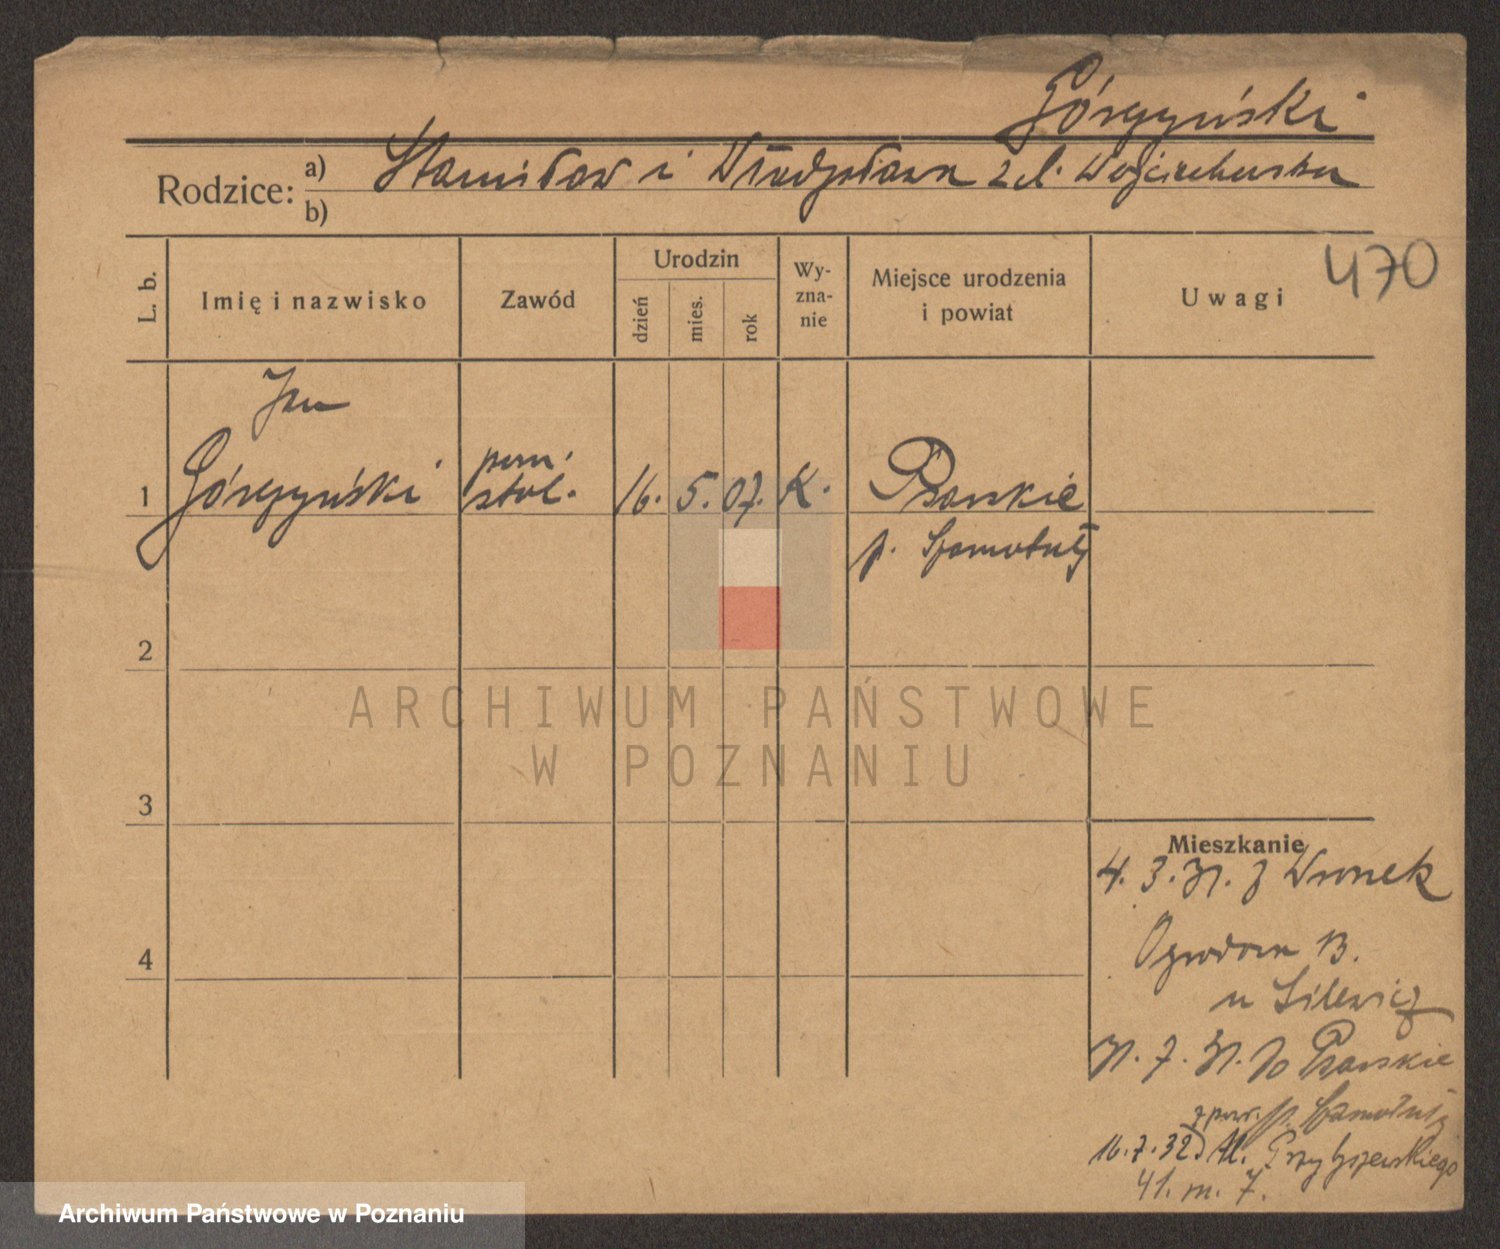 Górczyński
Rodzice: a) Stanisław i Władysława z d. Wojciechowska
b)
470
L. b. Imię i nazwisko Zawód Urodzin dzień mies. rok Wy-zna-nie Miejsce urodzenia i powiat Uwagi
Jan
1 Górczyński pom. stol. 16. 5. 07. K. Psarskie
p. Szamotuły
2
ARCHIWUM PAŃSTWOWE
W POZNANIU
3
Mieszkanie
4. 3. 31. z Wronek
4
Ogrodowa 13.
u Silewicz
31. 7. 31. do Psarskie
z pow. p. Szamotuły
16.7.32 Ul. Przybyszewskiego
41. m. 7.
Archiwum Państwowe w Poznaniu